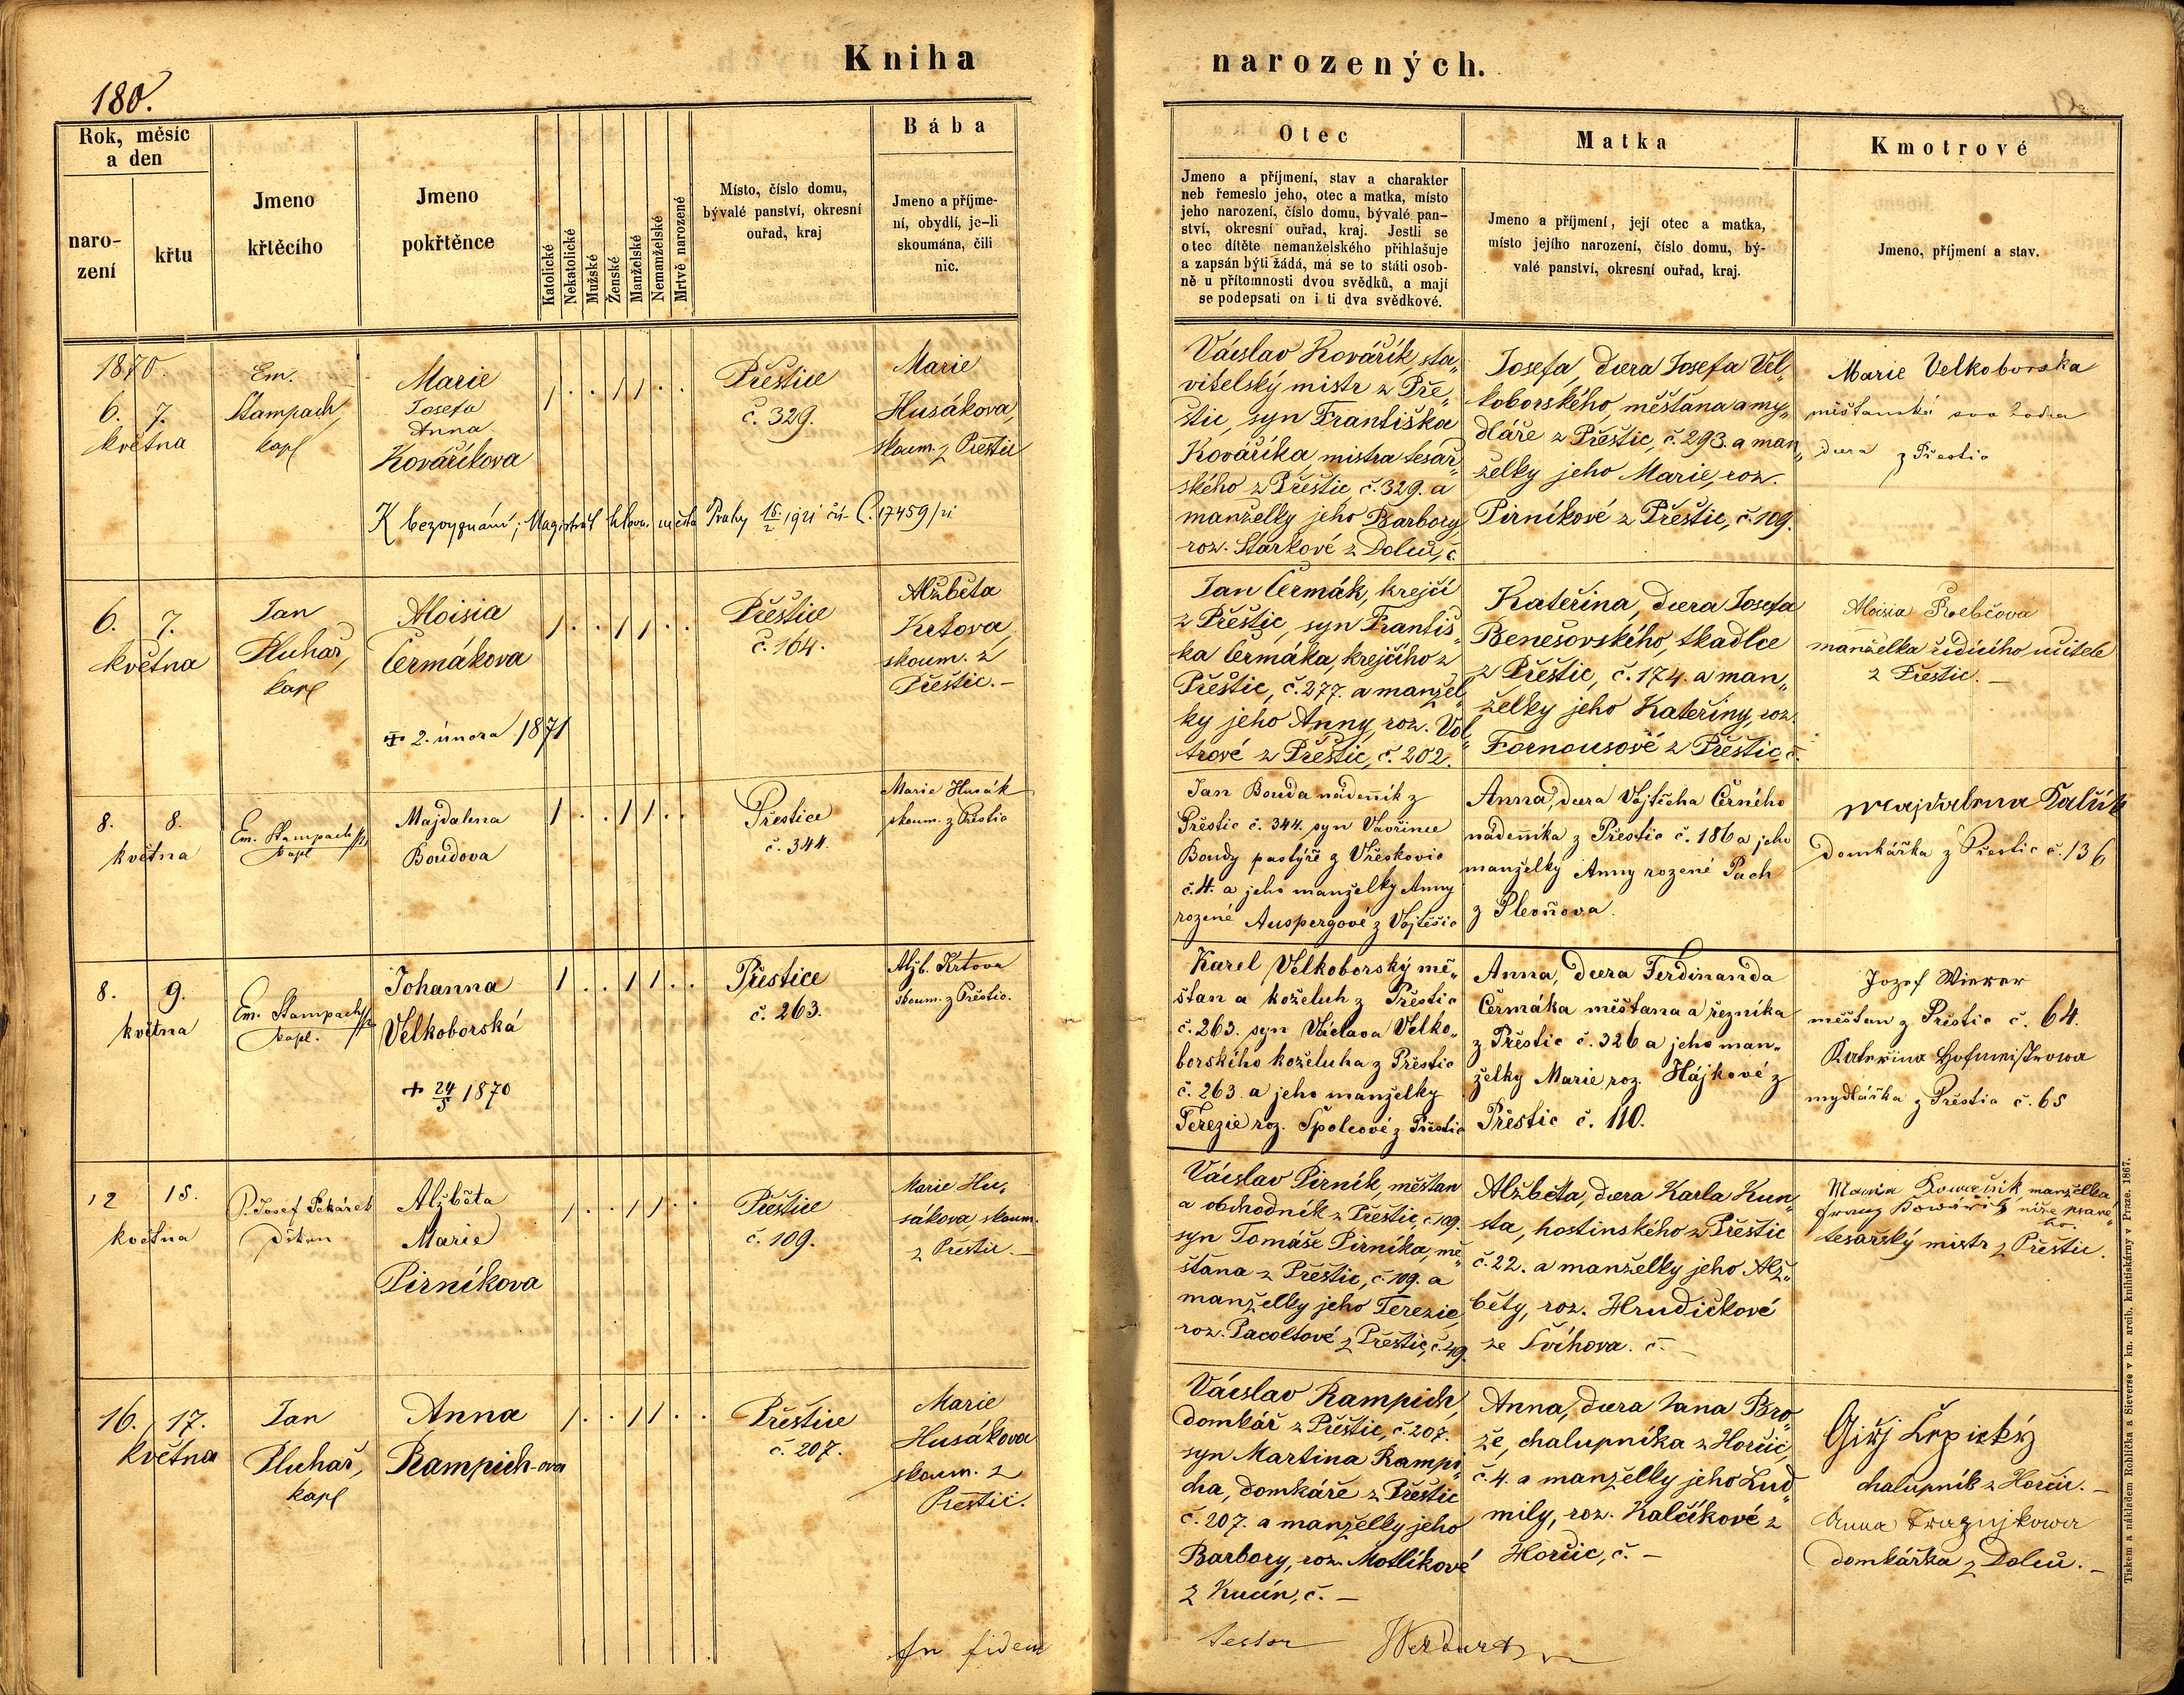 Kniha
narozených.
180.
Rok, měsíc
a den
naro-
zení
křtu
Jmeno
křtěcího
Jmeno
pokřtěnce
Katolické
Nekatolické
Mužské
Ženské
Manželské
Nemanželské
Mrtvě narozené
Místo, číslo domu,
bývalé panství, okresní
ouřad, kraj
Bába
Jmeno a příjme-
ní, obydlí, je-li
skoumána, čili
nic.
Otec
Jmeno a příjmení, stav a charakter
neb řemeslo jeho, otec a matka, místo
jeho narození, číslo domu, bývalé pan-
ství, okresní ouřad, kraj. Jestli se
otec dítěte nemanželského přihlašuje
a zapsán býti žádá, má se to státi osob-
ně u přítomnosti dvou svědků, a mají
se podepsati on i ti dva svědkové.
Matka
Jmeno a příjmení, její otec a matka,
místo jejího narození, číslo domu, bý-
valé panství, okresní ouřad, kraj.
Kmotrové
Jmeno, příjmení a stav.
1870.
6. 7.
května
Em.
Stampach,
kapl
Marie
Josefa
Anna
Kováříkova
Přeštice
č. 329.
Marie
Husákova,
skoum. z Přeštic
Václav Kovářík, sta„
vitelský mistr z Pře„
štic, syn Františka
Kováříka, mistra tesař„
ského z Přeštic, č. 329. a
manželky jeho Barbory,
roz. Starkové z Dolců, č.
Josefa, dcera Josefa Vel„
koborského, měšťana a my„
dláře z Přeštic, č. 293. a man„
želky jeho Marie, roz.
Pirníkové z Přeštic, č. 109.
Marie Velkoborska
měštanská
dcera z Přeštic
K bezvyznání; Magistrát hlav. města Prahy 15/2 1921 čís. 17459/21
6. 7.
května
Jan
Pluhař,
kapl
Aloisia
Čermákova
+ 2. února 1871
Přeštice
č. 164.
Alžběta
Krtova,
skoum. z
Přeštic. –
Jan Čermák, krejčí
z Přeštic, syn Františ„
ka Čermáka, krejčího z
Přeštic, č. 277. a manžel„
ky jeho Anny, roz. Vol„
trové z Přeštic, č. 202.
Kateřina, dcera Josefa
Benešovského, tkadlce
z Přeštic, č. 174. a man„
želky jeho Kateřiny, roz.
Fornousové z Přeštic, č.
Aloisia
manželka řídícího učitele
z Přeštic. –
8. 8.
května
Em. Stampach
kapl
Majdalena
Boudova
Přeštice
č. 344.
Marie Husák
skoum. z Přeštic
Jan Bouda nádenník z
Přeštic č. 344. syn Vavřince
Boudy pastýře z Vřeskovic
č. 4. a jeho manželky Anny
rozené Auspergové z Vojtěšic
Anna, dcera Vojtěcha Černého
nádenníka z Přeštic č. 186 a jeho
manželky Anny rozené Pach
z Plevňova.
Majdalena
domkářka z Přeštic č. 136
8. 9.
května
Em. Stampach
kapl.
Johanna
Velkoborská
+ 24/5 1870
Přeštice
č. 263.
Alžb. Krtova
skoum. z Přeštic.
Karel Velkoborský mě„
šťan a koželuh z Přeštic
č. 263. syn Václava Velko„
borského koželuha z Přeštic
č. 263. a jeho manželky
Terezie roz. Špolcové z Přeštic
Anna, dcera Ferdinanda
Čermáka měšťana a řezníka
z Přeštic č. 326 a jeho man„
želky Marie, roz. Hájkové z
Přeštic č. 110.
Jozef Wierer
měšťan z Přeštic č. 64.
Kateřina Hofmeistrowa
mydlářka z Přeštic č. 65
12 15.
května
P. Josef Pekárek
děkan
Alžběta
Marie
Pirníkova
Přeštice
č. 109.
Marie Hu„
sákova, skoum.
z Přeštic. –
Václav Pirník, měšťan
a obchodník z Přeštic, č. 109.
syn Tomáše Pirníka, mě„
šťana z Přeštic, č. 109. a
manželky jeho Terezie,
roz. Pacoltové z Přeštic, č. 49.
Alžběta, dcera Karla Kun„
sta, hostinského z Přeštic
č. 22. a manželky jeho Alž„
běty, roz. Hrudičkové
ze Švihova. č. –
Maria Kowařik, manželka
Franz Kowářik níže psané„
ho.
tesařský mistr z Přeštic.
16. 17.
května
Jan
Pluhař,
kapl
Anna
Rampich-ova
Přeštice
č. 207.
Marie
Husákova
skoum. z
Přeštic.
Václav Rampich,
domkář z Přeštic, č. 207.
syn Martina Rampi„
cha, domkáře z Přeštic
č. 207. a manželky jeho
Barbory, roz. Motlíkové
z Kucín, č. –
Anna, dcera Jana Bro„
že, chalupníka z Horčic,
č. 4. a manželky jeho Lud„
mily, roz. Kalčíkové z
Horčic, č. –
Giřj
chalupník z Horčic. –
Anna
domkářka z Dolců. –
In fidem
testor
Tiskem a nákladem Rohlíčka a Sieverse v kn. arcib. knihtiskárny v Praze. 1867.